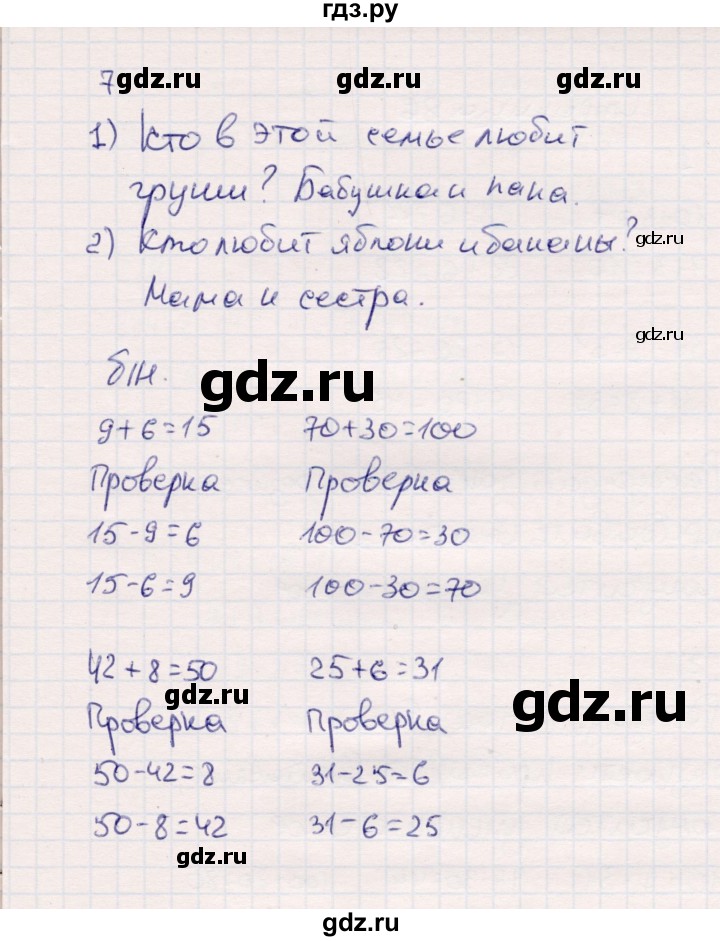 гдз.ру
7 gdz.ru gdz.ru gdz.ru
1) Кто в этой семье любит
груши? Бабушка и папа.
2) Кто любит яблоки и бананы? gdz.ru
Мама и сестра. gdz.ru
б/н. gdz.ru
9+6=15 70+30=100
Проверка Проверка
15-9=6 100-70=30
15-6=9 100-30=70
42+8=50 25+6=31
gdz.ru gdz.ru
Проверка Проверка
50-42=8 31-25=6
50-8=42 31-6=25
gdz.ru
gdz.ru